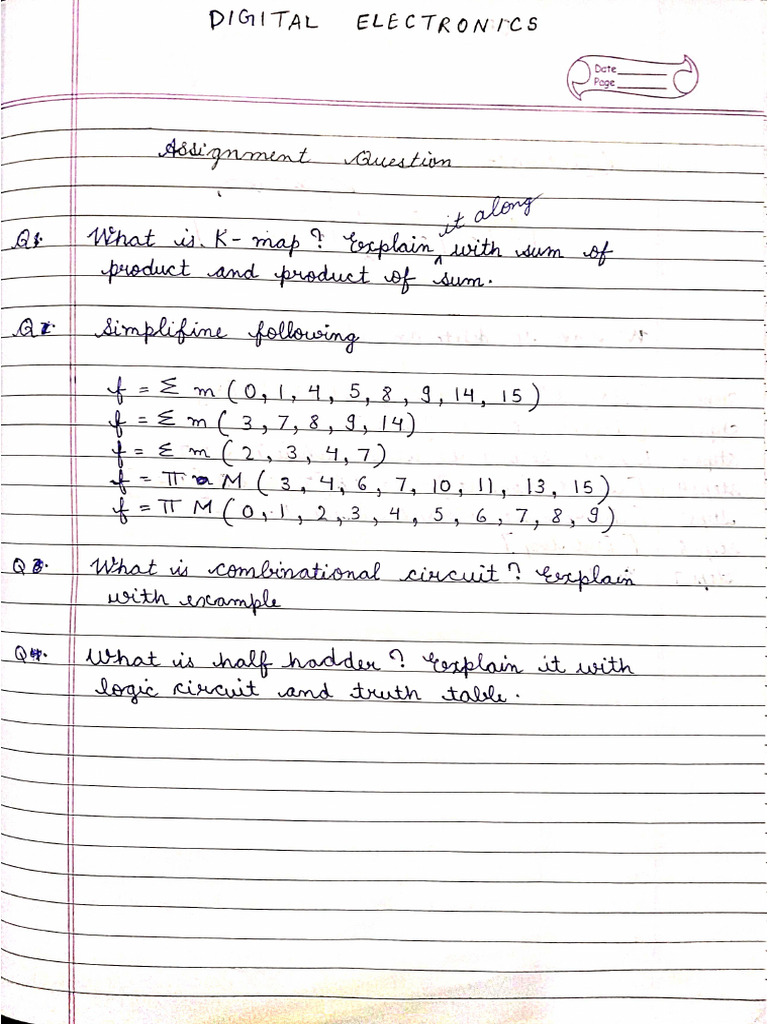 DIGITAL ELECTRONICS
Date
Page
Assignment Question
it along
Q1. What is K-map? Explain ^ with sum of
product and product of sum.
Q2. Simplifine following
f = Σ m (0, 1, 4, 5, 8, 9, 14, 15)
f = Σ m (3, 7, 8, 9, 14)
f = Σ m (2, 3, 4, 7)
f = π M (3, 4, 6, 7, 10, 11, 13, 15)
f = π M (0, 1, 2, 3, 4, 5, 6, 7, 8, 9)
Q3. What is combinational circuit? Explain
with example
Q4. What is half hadder? Explain it with
logic circuit and truth table.